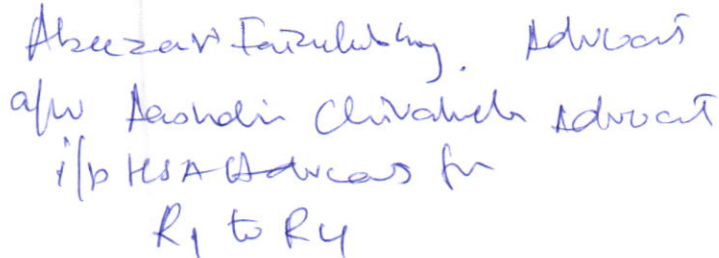 Abeezar Faizullabhoy, Advocat
a/w Aashdin Chivalwala Advocat
i/b HSA Advocas for
R1 to R4